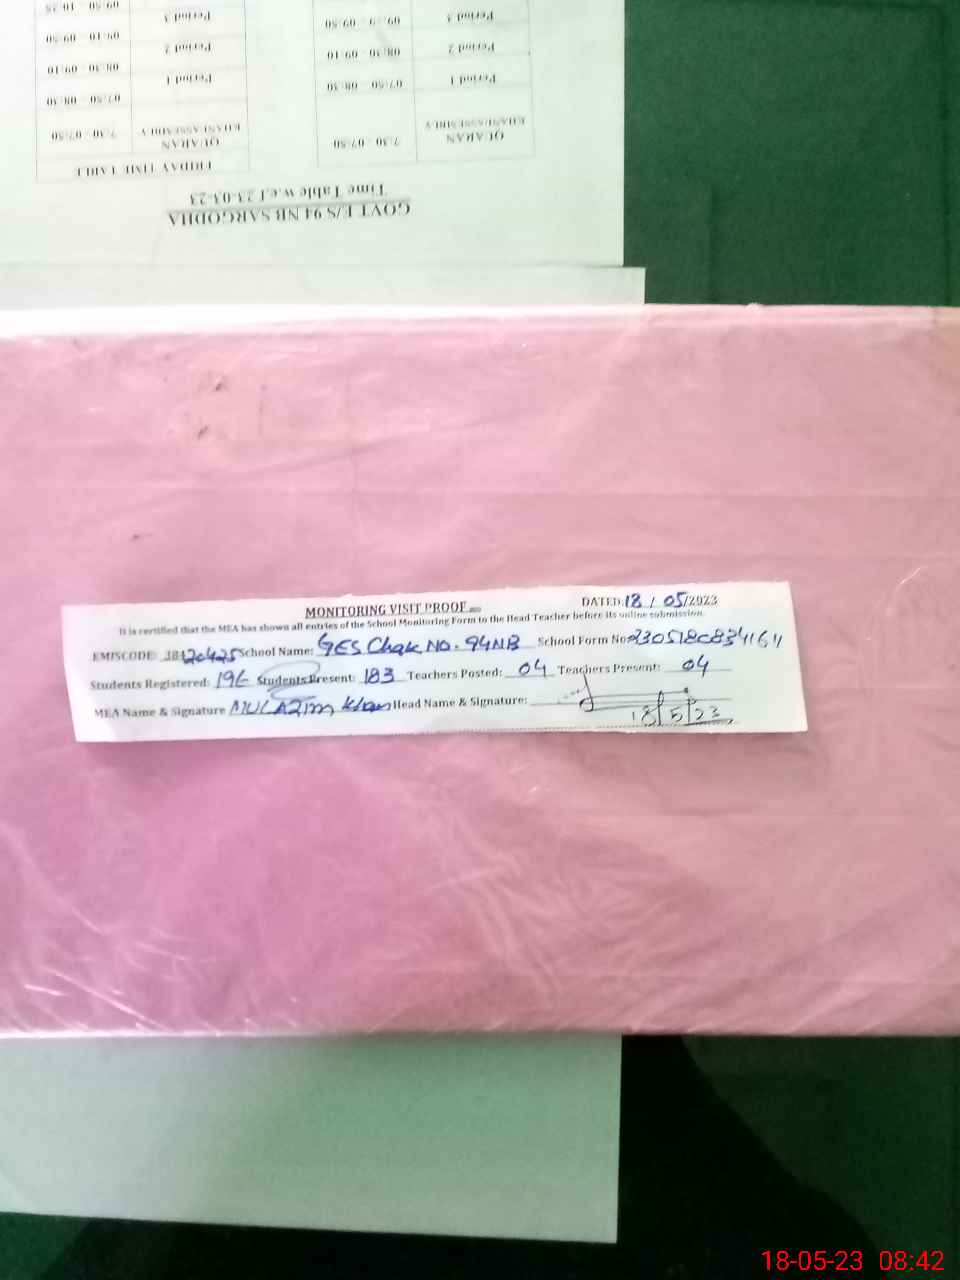 GOVT E/S 94 NB SARGODHA
Time Table w.e.f 23-03-23
FRIDAY TIME TABLE
QUARAN 7:30 - 07:50 QUARAN 7:30 - 07:50
Period 1 07:50 - 08:30 Period 1 07:50 - 08:30
Period 2 08:30 - 09:10 Period 2 08:30 - 09:10
Period 3 09:10 - 09:50 Period 3
MONITORING VISIT PROOF
DATED: 18 / 05/2023
It is certified that the MEA has shown all entries of the School Monitoring Form to the Head Teacher before its online submission.
EMISCODE: School Name: GES Chak No. 94NB School Form No:
Students Registered: Students Present: 183 Teachers Posted: 04 Teachers Present: 04
MEA Name & Signature MULAZIM Khan Head Name & Signature:
18/5/23
18-05-23 08:42